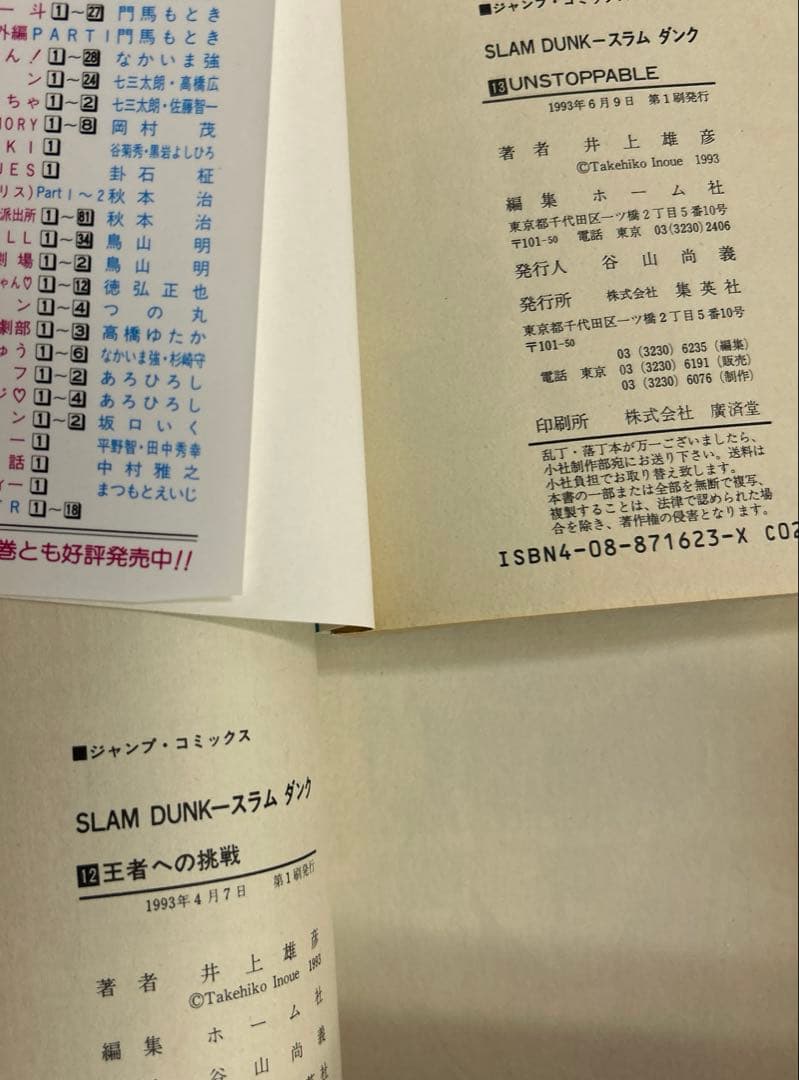 一斗1〜27 門馬もとき
外編PART I 門馬もとき
ん！1〜28 なかいま強
ン1〜24 七三太朗・高橋広
ちゃ1〜2 七三太朗・佐藤智一
MORY1〜8 岡村茂
KI1 谷菊秀・黒岩よしひろ
UES1 卦石柾
リス)Part 1〜2 秋本治
派出所1〜81 秋本治
LL1〜34 鳥山明
劇場1〜2 鳥山明
ゃん♡1〜12 徳弘正也
ン1〜4 つの丸
劇部1〜3 高橋ゆたか
ゅう1〜6 なかいま強・杉崎守
フ1〜2 あろひろし
ジ♡1〜4 あろひろし
ン1〜2 坂口いく
ー1 平野智・田中秀幸
話1 中村雅之
ィー1 まつもとえいじ
TR1〜18
巻とも好評発売中!!
■ジャンプ・コミックス
SLAM DUNKースラム ダンク
13UNSTOPPABLE
1993年6月9日 第1刷発行
著者 井上雄彦
©Takehiko Inoue 1993
編集 ホーム社
東京都千代田区一ツ橋2丁目5番10号
〒101-50 電話 東京 03(3230)2406
発行人 谷山尚義
発行所 株式会社 集英社
東京都千代田区一ツ橋2丁目5番10号
〒101-50
03 (3230) 6235 (編集)
電話 東京 03 (3230) 6191 (販売)
03 (3230) 6076 (制作)
印刷所 株式会社 廣済堂
乱丁・落丁本が万一ございましたら、
小社制作部宛にお送り下さい。送料は
小社負担でお取り替え致します。
本書の一部または全部を無断で複写、
複製することは、法律で認められた場
合を除き、著作権の侵害となります。
ISBN4-08-871623-X C02
■ジャンプ・コミックス
SLAM DUNKースラム ダンク
12王者への挑戦
1993年4月7日 第1刷発行
著者 井上雄彦
©Takehiko Inoue 1993
編集 ホーム社
谷山尚義